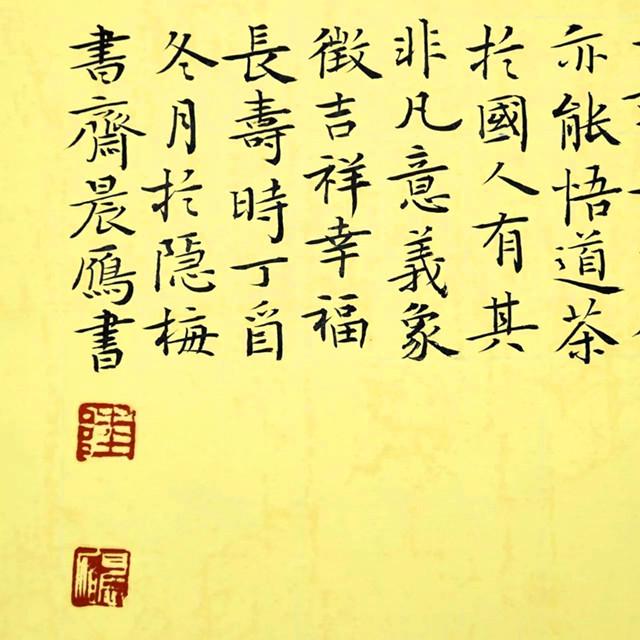 亦能悟道茶
於國人有其
非凡意義象
徵吉祥幸福
長壽時丁酉
冬月於隱梅
書齋晨鴈書